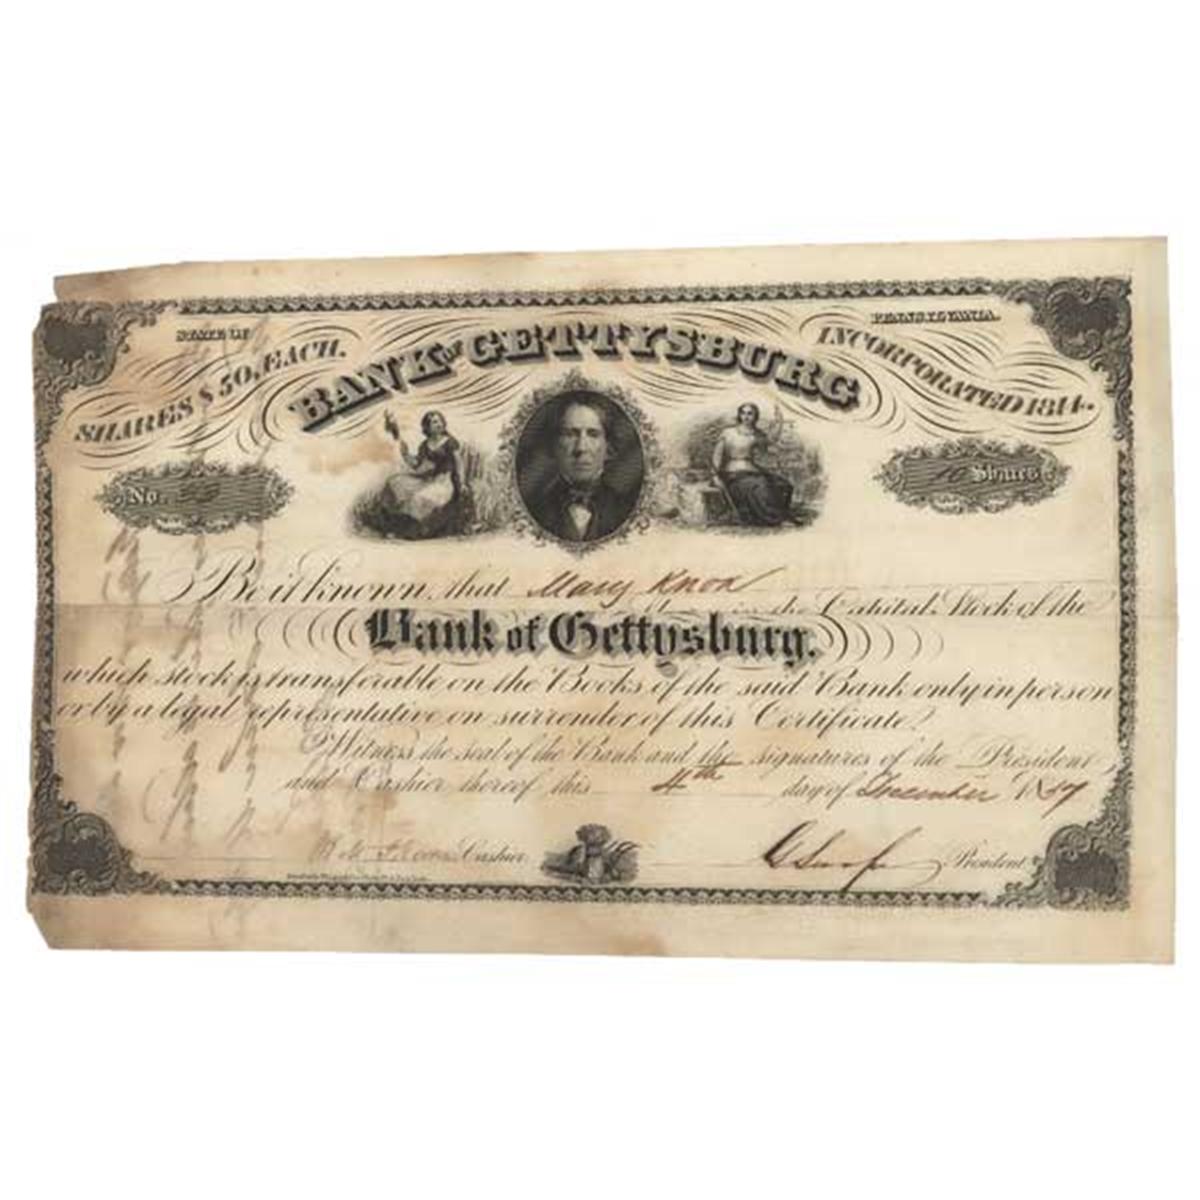 STATE OF
PENNSYLVANIA.
SHARES $50, EACH.
BANK OF GETTYSBURG
INCORPORATED 1814.
No.
10 Shares
Be it known, that Mary Knox
in the Capital Stock of the
Bank of Gettysburg.
which stock is transferable on the Books of the said Bank only in person
or by a legal representative on surrender of this Certificate.
Witness the seal of the Bank and the signatures of the President
and Cashier thereof this 4th day of December 1857
Cashier
President